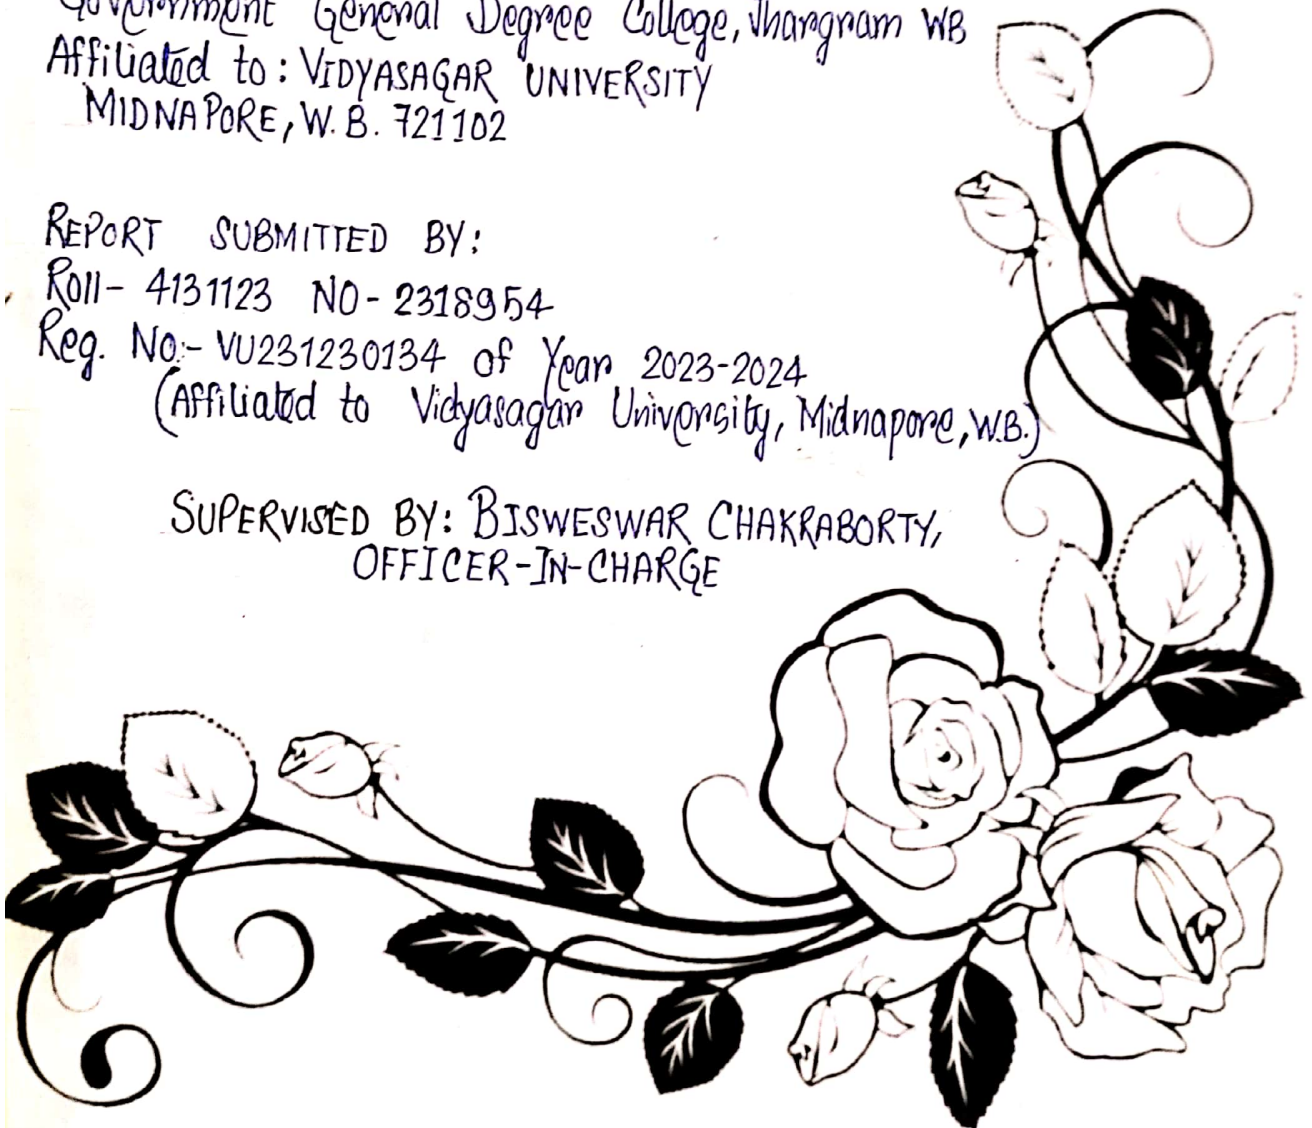 Government General Degree College, Jhargram WB
Affiliated to: VIDYASAGAR UNIVERSITY
MIDNAPORE, W.B. 721102
REPORT SUBMITTED BY:
Roll- 4131123 NO- 2318954
Reg. No:- VU231230134 of Year 2023-2024
(Affiliated to Vidyasagar University, Midnapore, W.B.)
SUPERVISED BY: BISWESWAR CHAKRABORTY,
OFFICER-IN-CHARGE